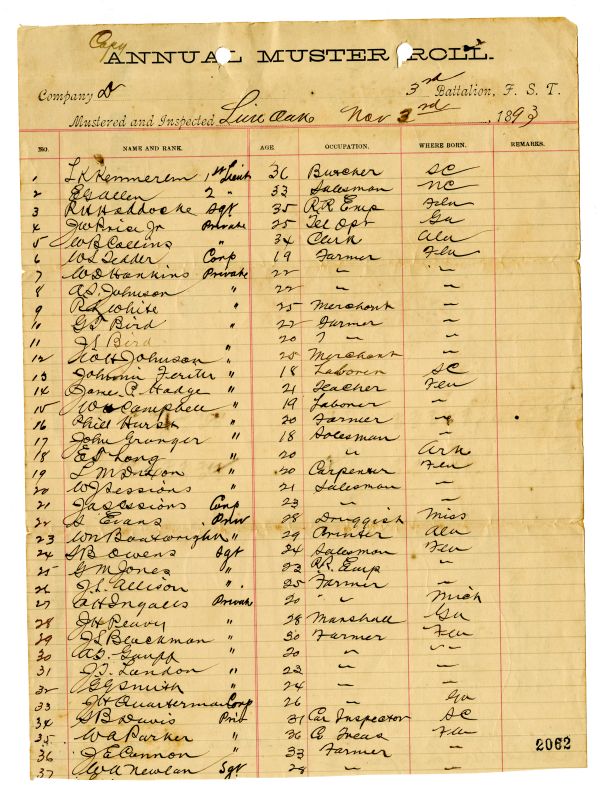 Copy
ANNUAL MUSTER ROLL.
Company D 3rd Battalion, F. S. T.
Mustered and Inspected Live Oak Nov 3rd, 1893
NO. NAME AND RANK. AGE OCCUPATION. WHERE BORN. REMARKS.
1 1st Lieut 36 Butcher SC
2 E G Allen 2 " 33 Salesman NC
3 Sgt 35 R.R. Emp Fla
4 J W Price Jr Private 25 Tel Opt Ga
5 W B Collins " 34 Clerk Ala
6 W L Tedder Corp 19 Farmer Fla
7 W D Hankins Private 22 " "
8 A S Johnson " 22 " "
9 R L White " 25 Merchant "
10 G T Bird " 22 Farmer "
11 J L Bird " 20 " "
12 Johnson " 25 Merchant "
13 Johnnie " 18 Laborer SC
14 James C. Hodge " 21 Teacher Fla
15 Campbell " 19 Laborer "
16 Phil Hurst " 20 Farmer "
17 John Granger " 18 Salesman "
18 E T Long " 20 " Ark
19 L M Dixon " 20 Carpenter Fla
20 W J Sessions " 21 Salesman "
21 Jas Sessions Corp 23 " "
22 S Evans Priv 28 Druggist Miss
23 Wm Boatwright " 29 Printer Ala
24 G B Owens Sgt 24 Salesman Fla
25 G M Jones " 23 R.R. Emp "
26 J. L. Allison " 25 Farmer "
27 Ingalls Private 20 " Mich
28 J H Peavy " 28 Marshall Ga
29 J S Blackman " 30 Farmer Fla
30 A S " 20 " "
31 J. T. Landon " 23 "
32 G G Smith " 24 " "
33 J H Quarterman Corp 26 " Ga
34 S B Davis Priv 31 Car Inspector SC
35 W A Parker " 36 Fla
36 J E Cannon " 33 Farmer "
37 W A Newlan Sgt 28 " "
2062